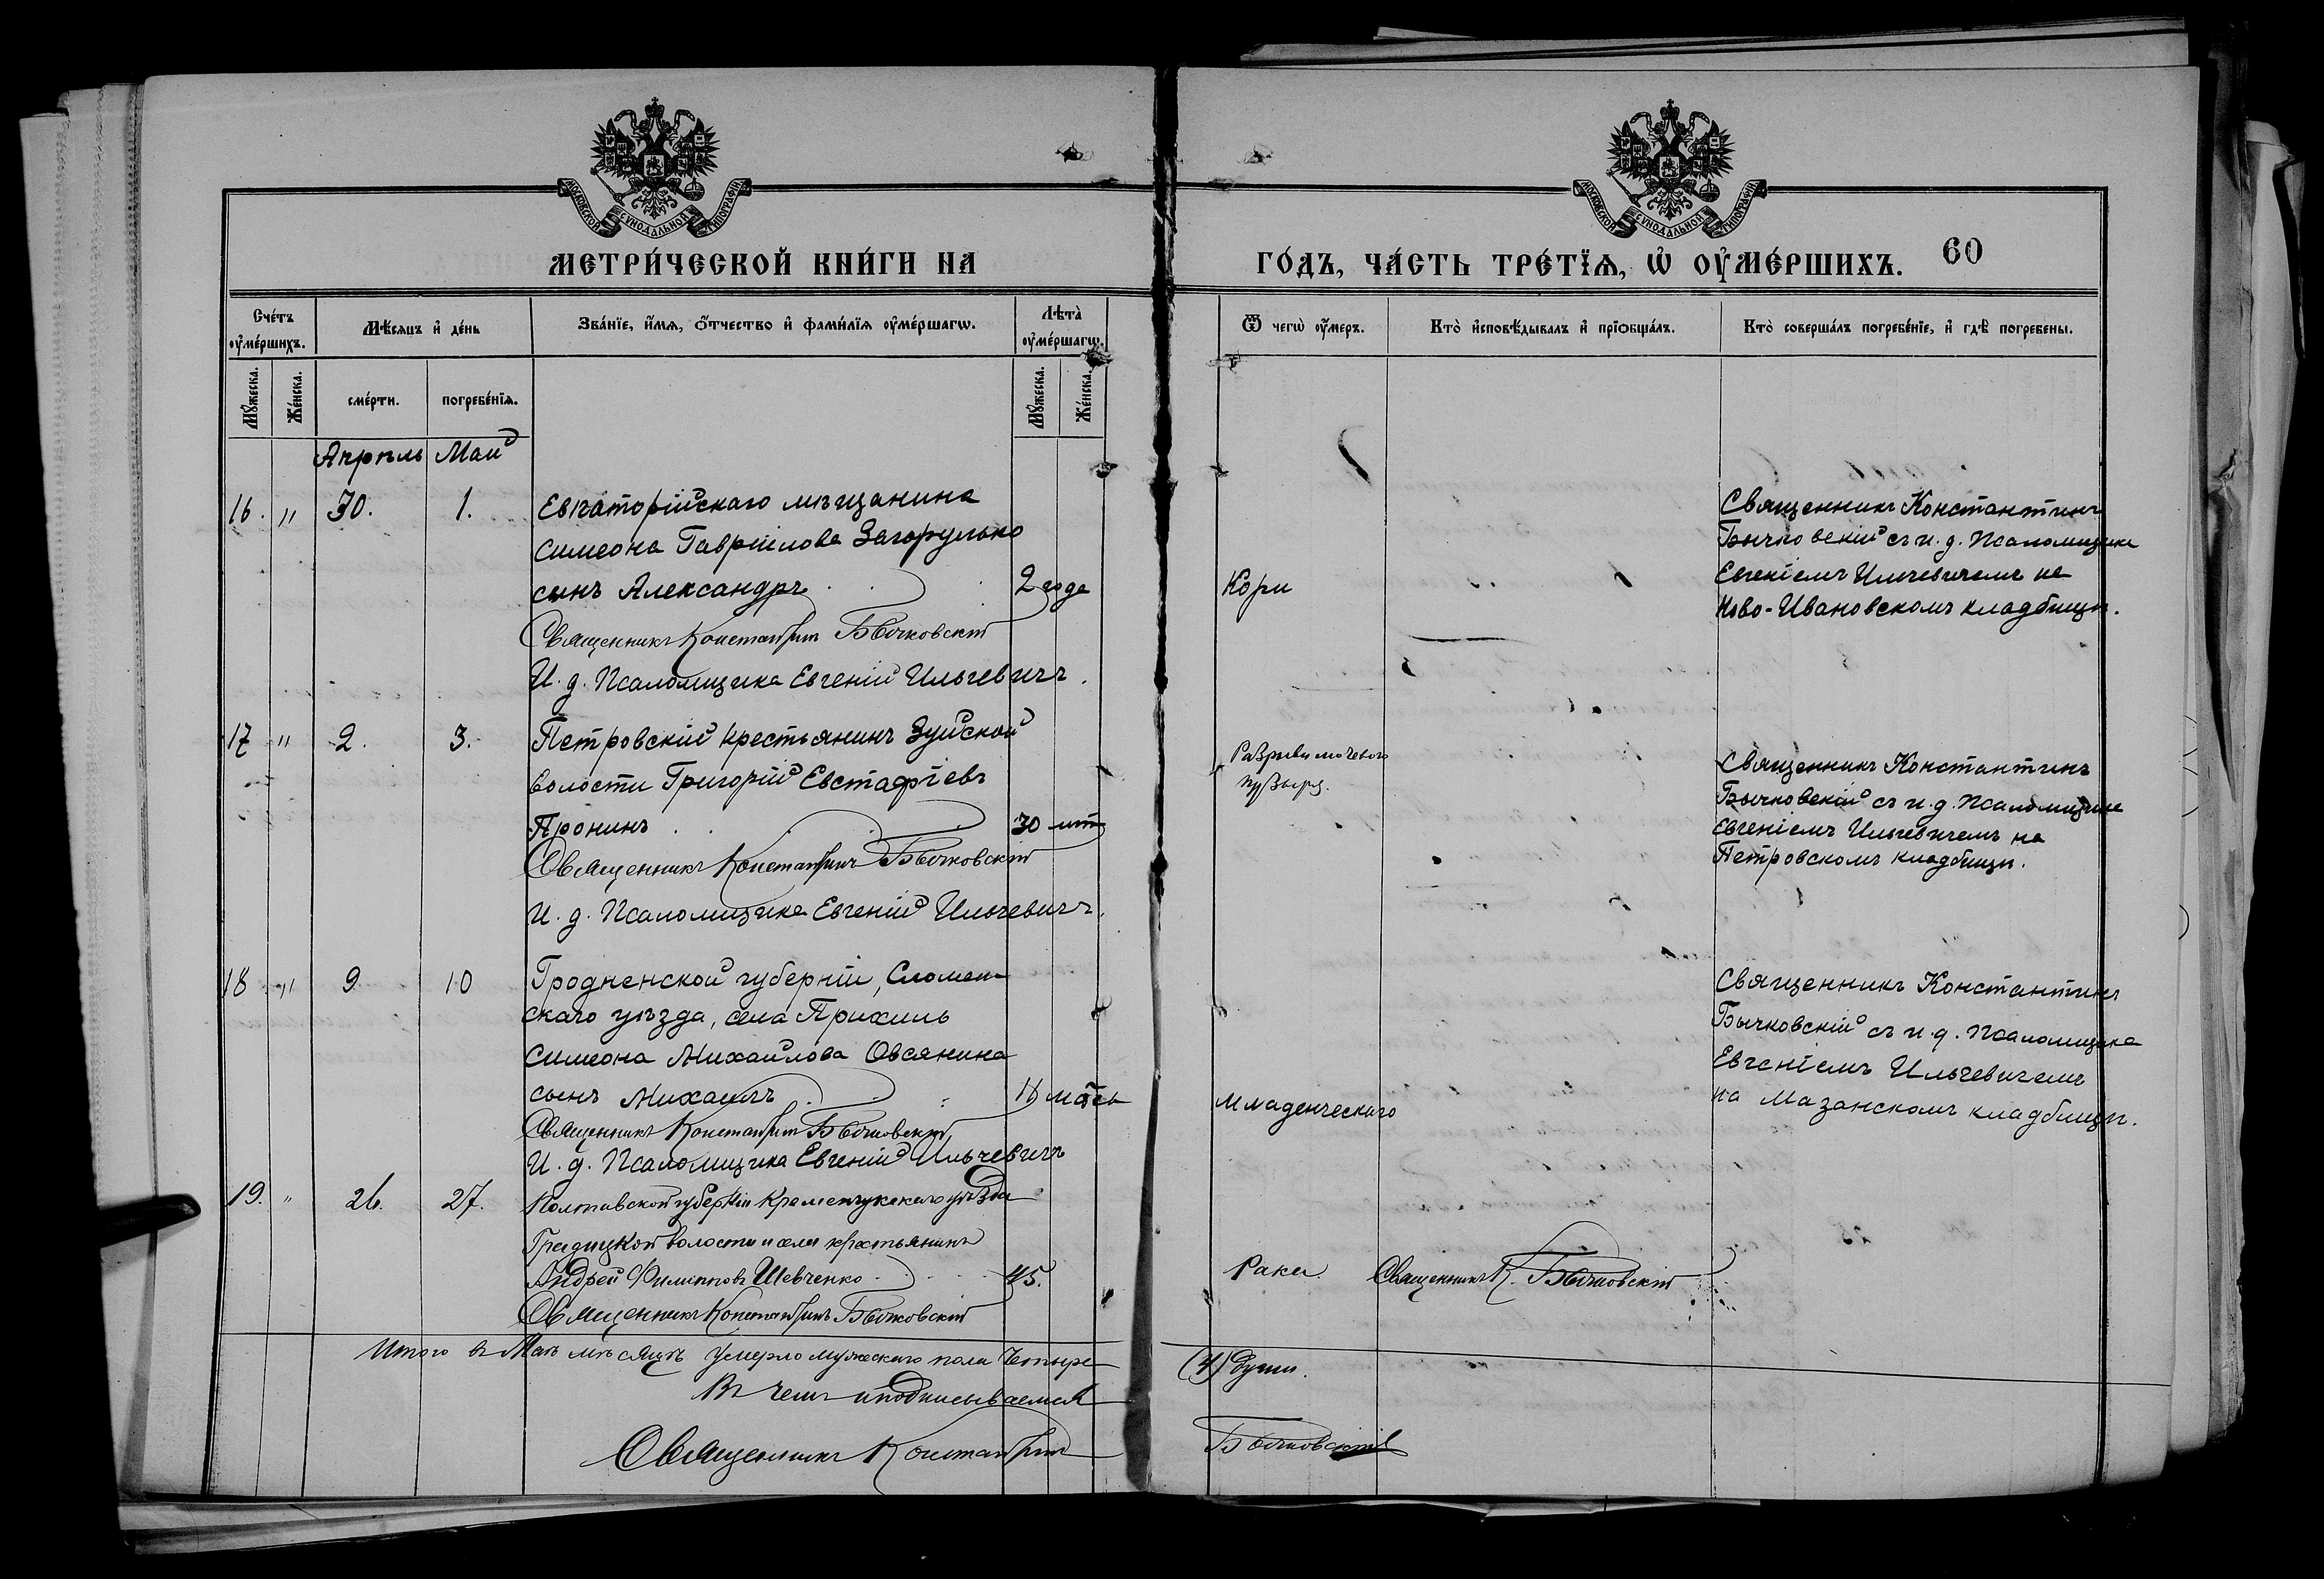 МОСКОВСКОЙ СУНОДАЛЬНОЙ ТИПОГРАФІИ
МОСКОВСКОЙ СУНОДАЛЬНОЙ ТИПОГРАФІИ
МЕТРИ́ЧЕСКОЙ КНИ́ГИ НА
ГО́ДЪ, ЧА́СТЬ ТРЕ́ТЇѦ, Ѡ҆ ОУ҆МЕ́РШИХЪ. 60
Сче́тъ оу҆ме́ршихъ.
Мѣ́сяцъ и҆ де́нь
Зва́нїе, и҆́мѧ, ѻ҆́тчество и҆ фамі́лїѧ оу҆ме́ршагѡ.
Лѣта̀ оу҆ме́ршагѡ.
Ѿ чегѡ̀ оу҆́меръ.
Кто̀ и҆сповѣ́дывалъ и҆ прїѡбща́лъ.
Кто̀ соверша́лъ погребе́нїе, и҆ гдѣ̀ погребены.
Му́жеска.
Же́нска.
сме́рти.
погребе́нїѧ.
Му́жеска.
Же́нска.
Апрѣль Май
16. " 30. 1. Евпаторійскаго мѣщанина
Симеона Гавріилова Загорулько
сынъ Александръ 2 года
Священникъ Константинъ Бычковскій
И. д. Псаломщика Евгеній Ильчевичъ.
Кори
Священникъ Константинъ
Бычковскій съ и. д. Псаломщика
Евгеніемъ Ильчевичемъ на
Ново-Ивановскомъ кладбищѣ.
17 " 2. 3. Петровскій крестьянинъ Зуйской
волости Григорій Евстафіевъ
Пронинъ 30 лѣт
Священникъ Константинъ Бычковскій
И. д. Псаломщика Евгеній Ильчевичъ.
Разрыва мочевого
пузыря.
Священникъ Константинъ
Бычковскій съ и. д. Псаломщика
Евгеніемъ Ильчевичемъ на
Петровскомъ кладбищѣ.
18 " 9 10 Гродненской губерніи, Слоним-
скаго уѣзда, села
Симеона Михайлова Овсянина
сынъ Михаилъ
Священникъ Константинъ Бычковскій
И. д. Псаломщика Евгеній Ильчевичъ
Младенческаго
Священникъ Константинъ
Бычковскій съ и. д. Псаломщика
Евгеніемъ Ильчевичемъ
на Мазанскомъ кладбищѣ.
19. " 26. 27. Полтавской губерніи Кременчукскаго уѣзда
Градицкой волости и села крестьянинъ
Андрей Филипповъ Шевченко 45.
Священникъ Константинъ Бычковскій
Рака
Священникъ К. Бычковскій
Итого въ Маѣ мѣсяцѣ умерло мужескаго пола Четыре (4) души.
Въ чемъ и подписываемся
Священникъ Константинъ Бычковскій